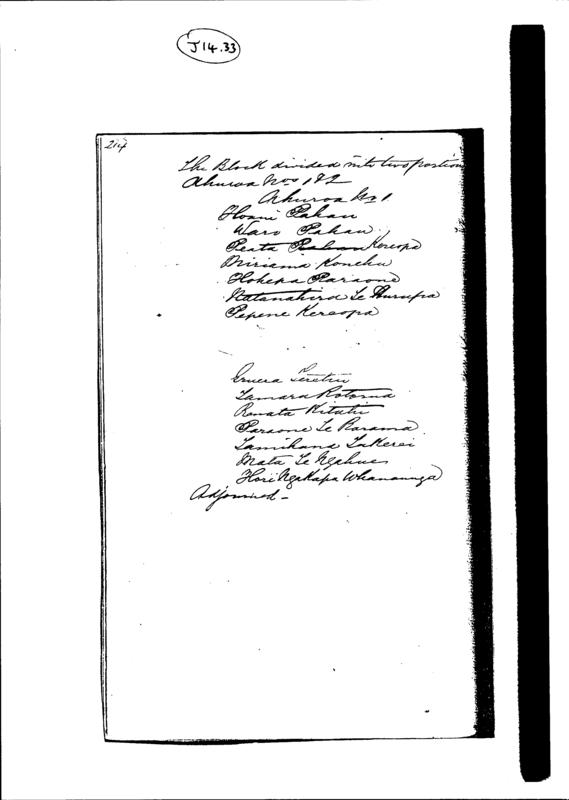 J14.33
214
The Block divided into two portions
Ahuroa Nos 1 & 2
Ahuroa No 1
Hoani Pahau
Waro Pahau
Peata Pahau Kereopa
Miriama Konehu
Hohepa Paraone
Natanahira Te Hurupa
Pepene Kereopa
Eruera
Tamara Rotorua
Renata Kituhi
Paraone Te Parama
Tamihana Tukerei
Mata Te Ngahue
Hori Ngakapa Whanaunga
Adjourned -